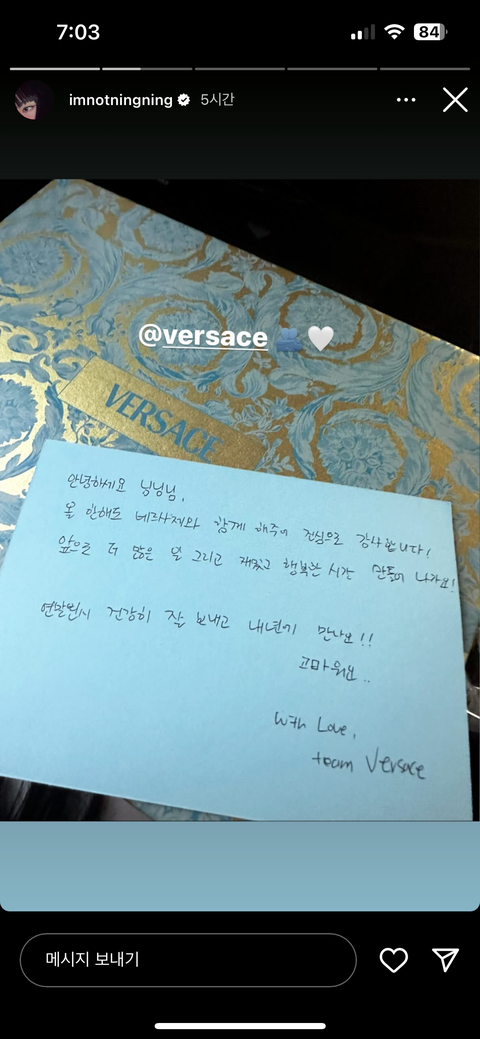 7:03
84
imnotningning
5시간
@versace 🫂🤍
VERSACE
안녕하세요 닝닝님,
올 한해도 베르사체와 함께 해주어 진심으로 감사합니다!
앞으로 더 많은 일 그리고 재밌고 행복한 시간 만들어 나가요!
연말연시 건강히 잘 보내고 내년에 만나요!!
고마워요..
With Love,
team Versace
메시지 보내기